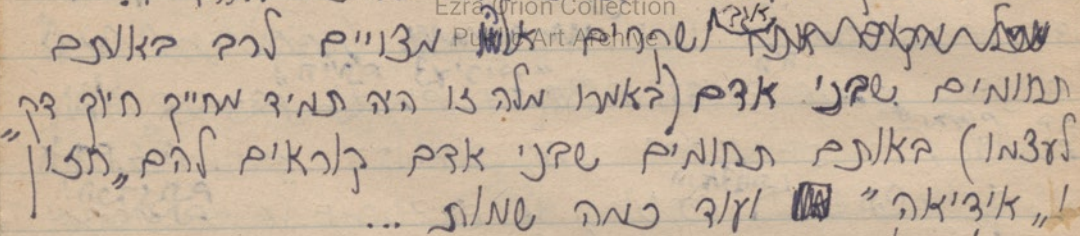 Ezra Orion Collection
Public Art Archive
ושקרים אלה מצויים לרב באותם
תחומים שבני אדם (באמרו מלה זו היה תמיד מחייך חיוך דק
לעצמו) באותם תחומים שבני אדם קוראים להם „חזון"
ו„אידיאה" ועוד כמה שמות ...